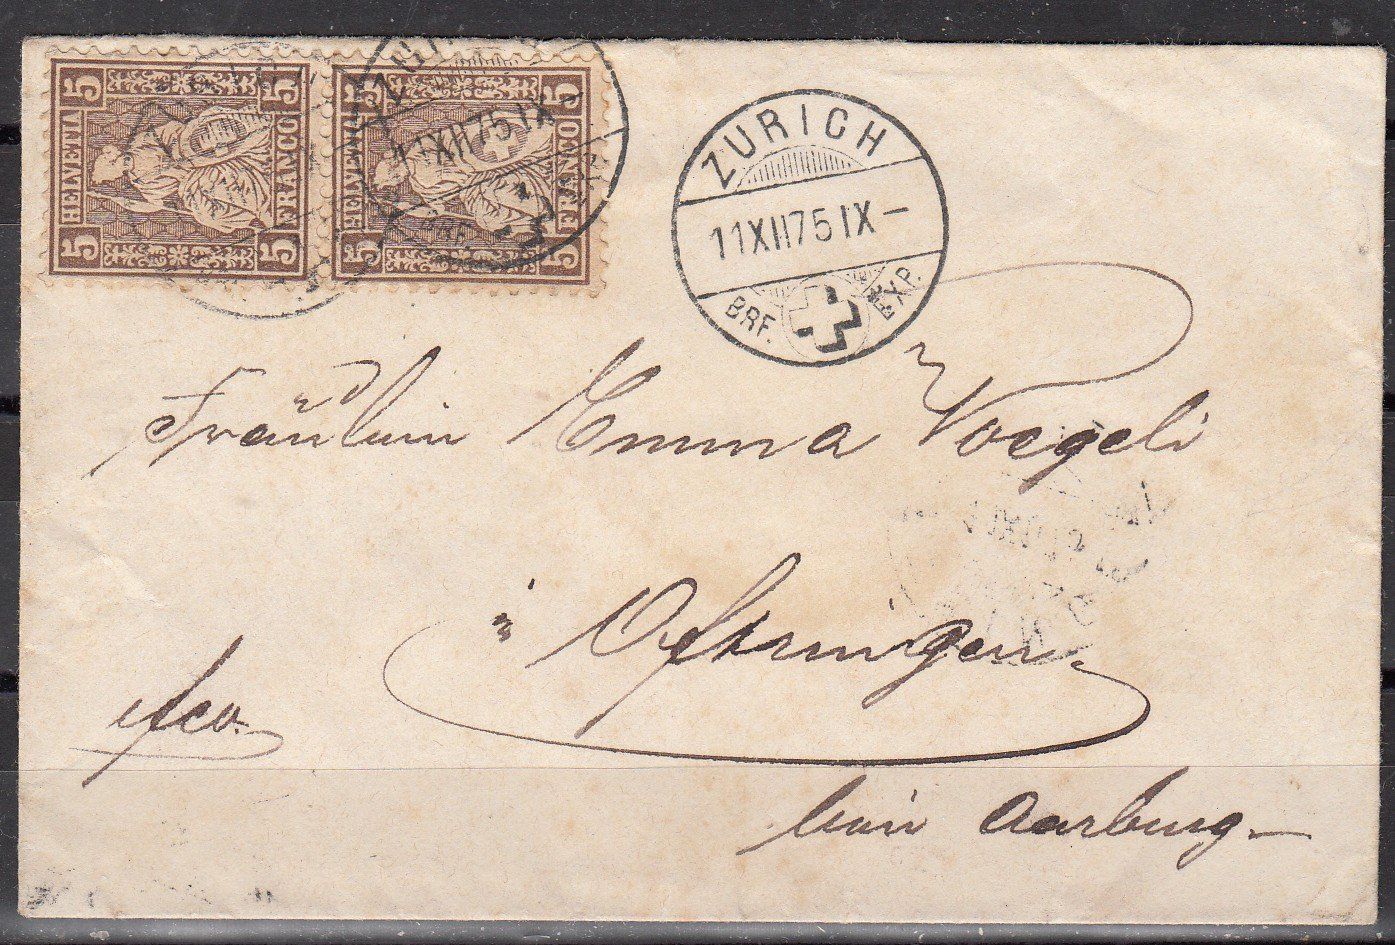 5 5
HELVETIA
FRANCO
5 5
5 5
HELVETIA
FRANCO
5 5
11XII75IX
ZURICH
11XII75IX–
BRF. EXP.
Fräulein Emma Voegeli
in Oftringen.
fco.
bein Aarburg